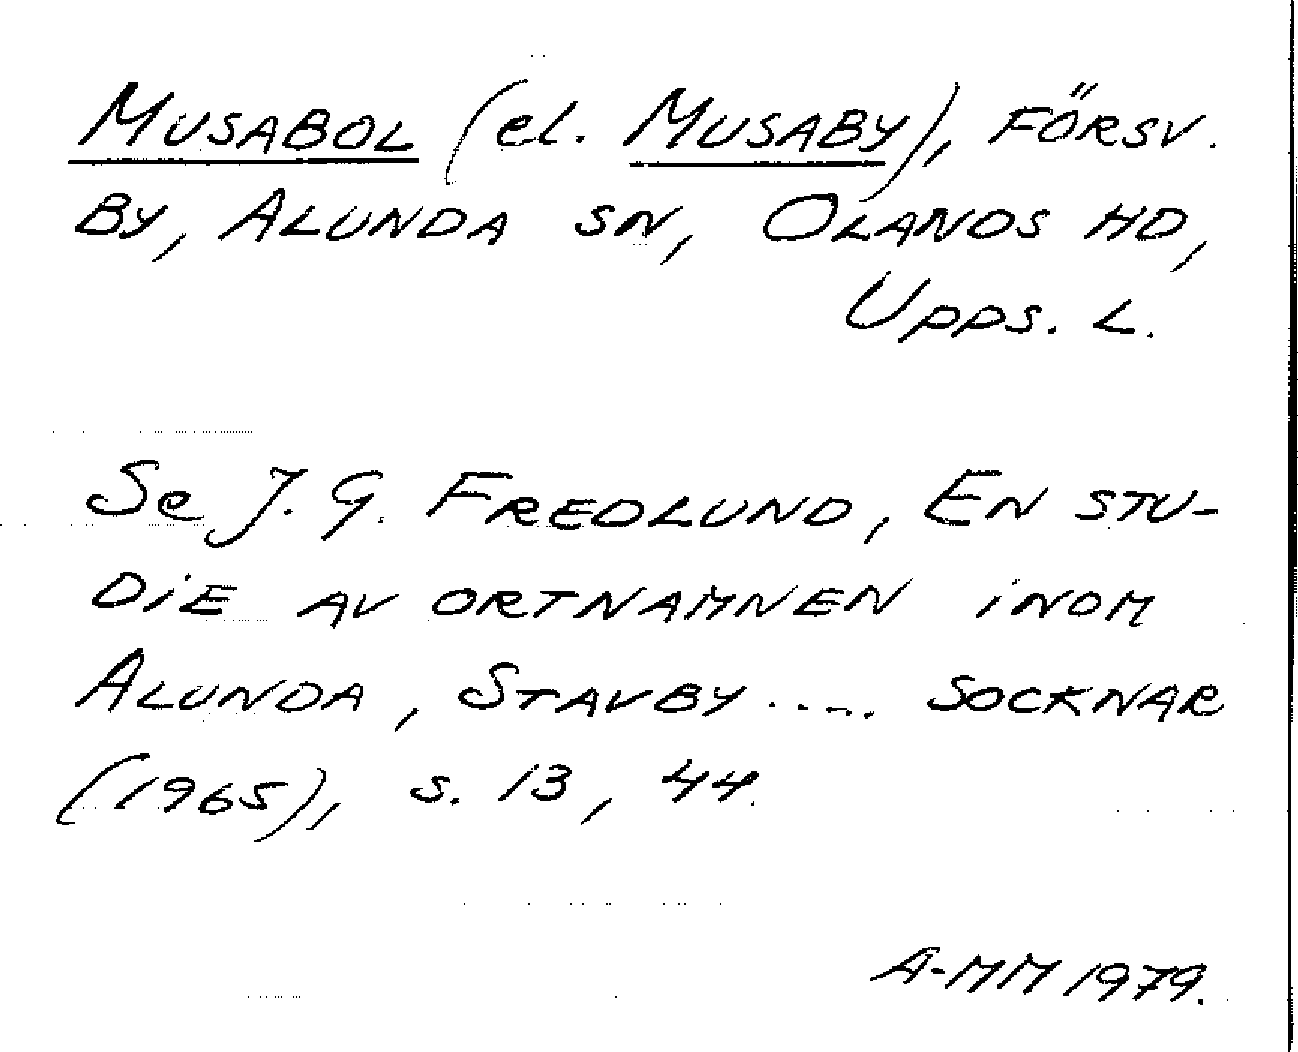 MUSABOL (el. MUSABY), FÖRSV.
BY, ALUNDA SN, OLANDS HD,
UPPS. L.
Se J. G. FREDLUND, EN STU-
DiE AV ORTNAMNEN iNOM
ALUNDA, STAVBY ..... SOCKNAR
(1965), s. 13, 44.
A-MM 1979.